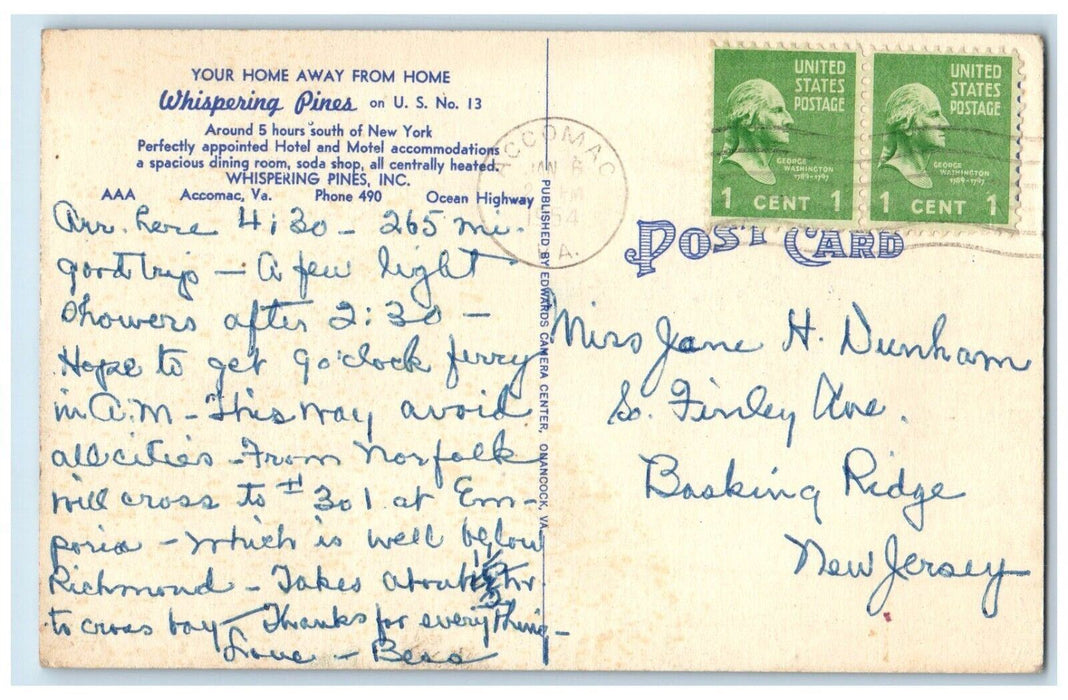 YOUR HOME AWAY FROM HOME
Whispering Pines on U. S. No. 13
Around 5 hours south of New York
Perfectly appointed Hotel and Motel accommodations
a spacious dining room, soda shop, all centrally heated.
WHISPERING PINES, INC.
AAA Accomac, Va. Phone 490 Ocean Highway
Arr. here 4:30 - 265 mi.
good trip - A few light
showers after 2:30 -
Hope to get 9 o'clock ferry
in A.M - This way avoid
all cities - From Norfolk
will cross to # 301 at Em-
poria - which is well below
Richmond - Takes about hr
to cross bay - Thanks for everything -
Love - Bess
PUBLISHED BY EDWARDS CAMERA CENTER, ONANCOCK, VA.
ACCOMAC
JAN 6
PM
1954
VA.
UNITED
STATES
POSTAGE
GEORGE
WASHINGTON
1789-1797
1 CENT 1
UNITED
STATES
POSTAGE
GEORGE
WASHINGTON
1789-1797
1 CENT 1
POST CARD
Miss Jane H. Dunham
So. Finley Ave.
Basking Ridge
New Jersey